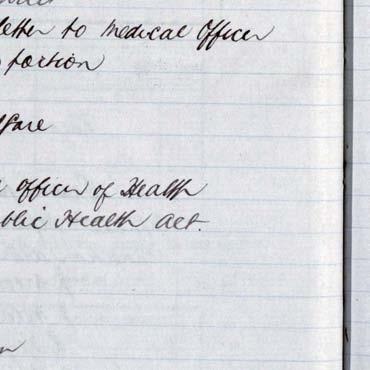 letter to Medical Officer
portion
lfare
Officer of Health
blic Health Act.